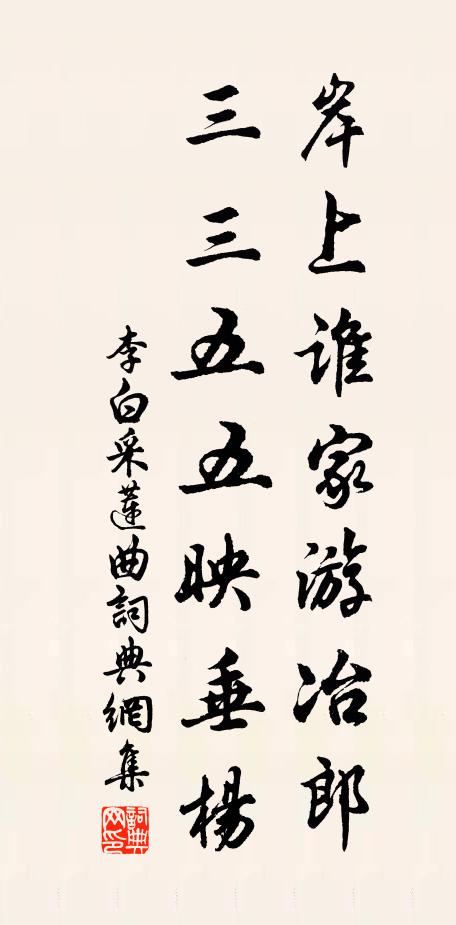 岸上誰家游冶郎
三三五五映垂楊
李白采蓮曲詞典網集
詞典
网印